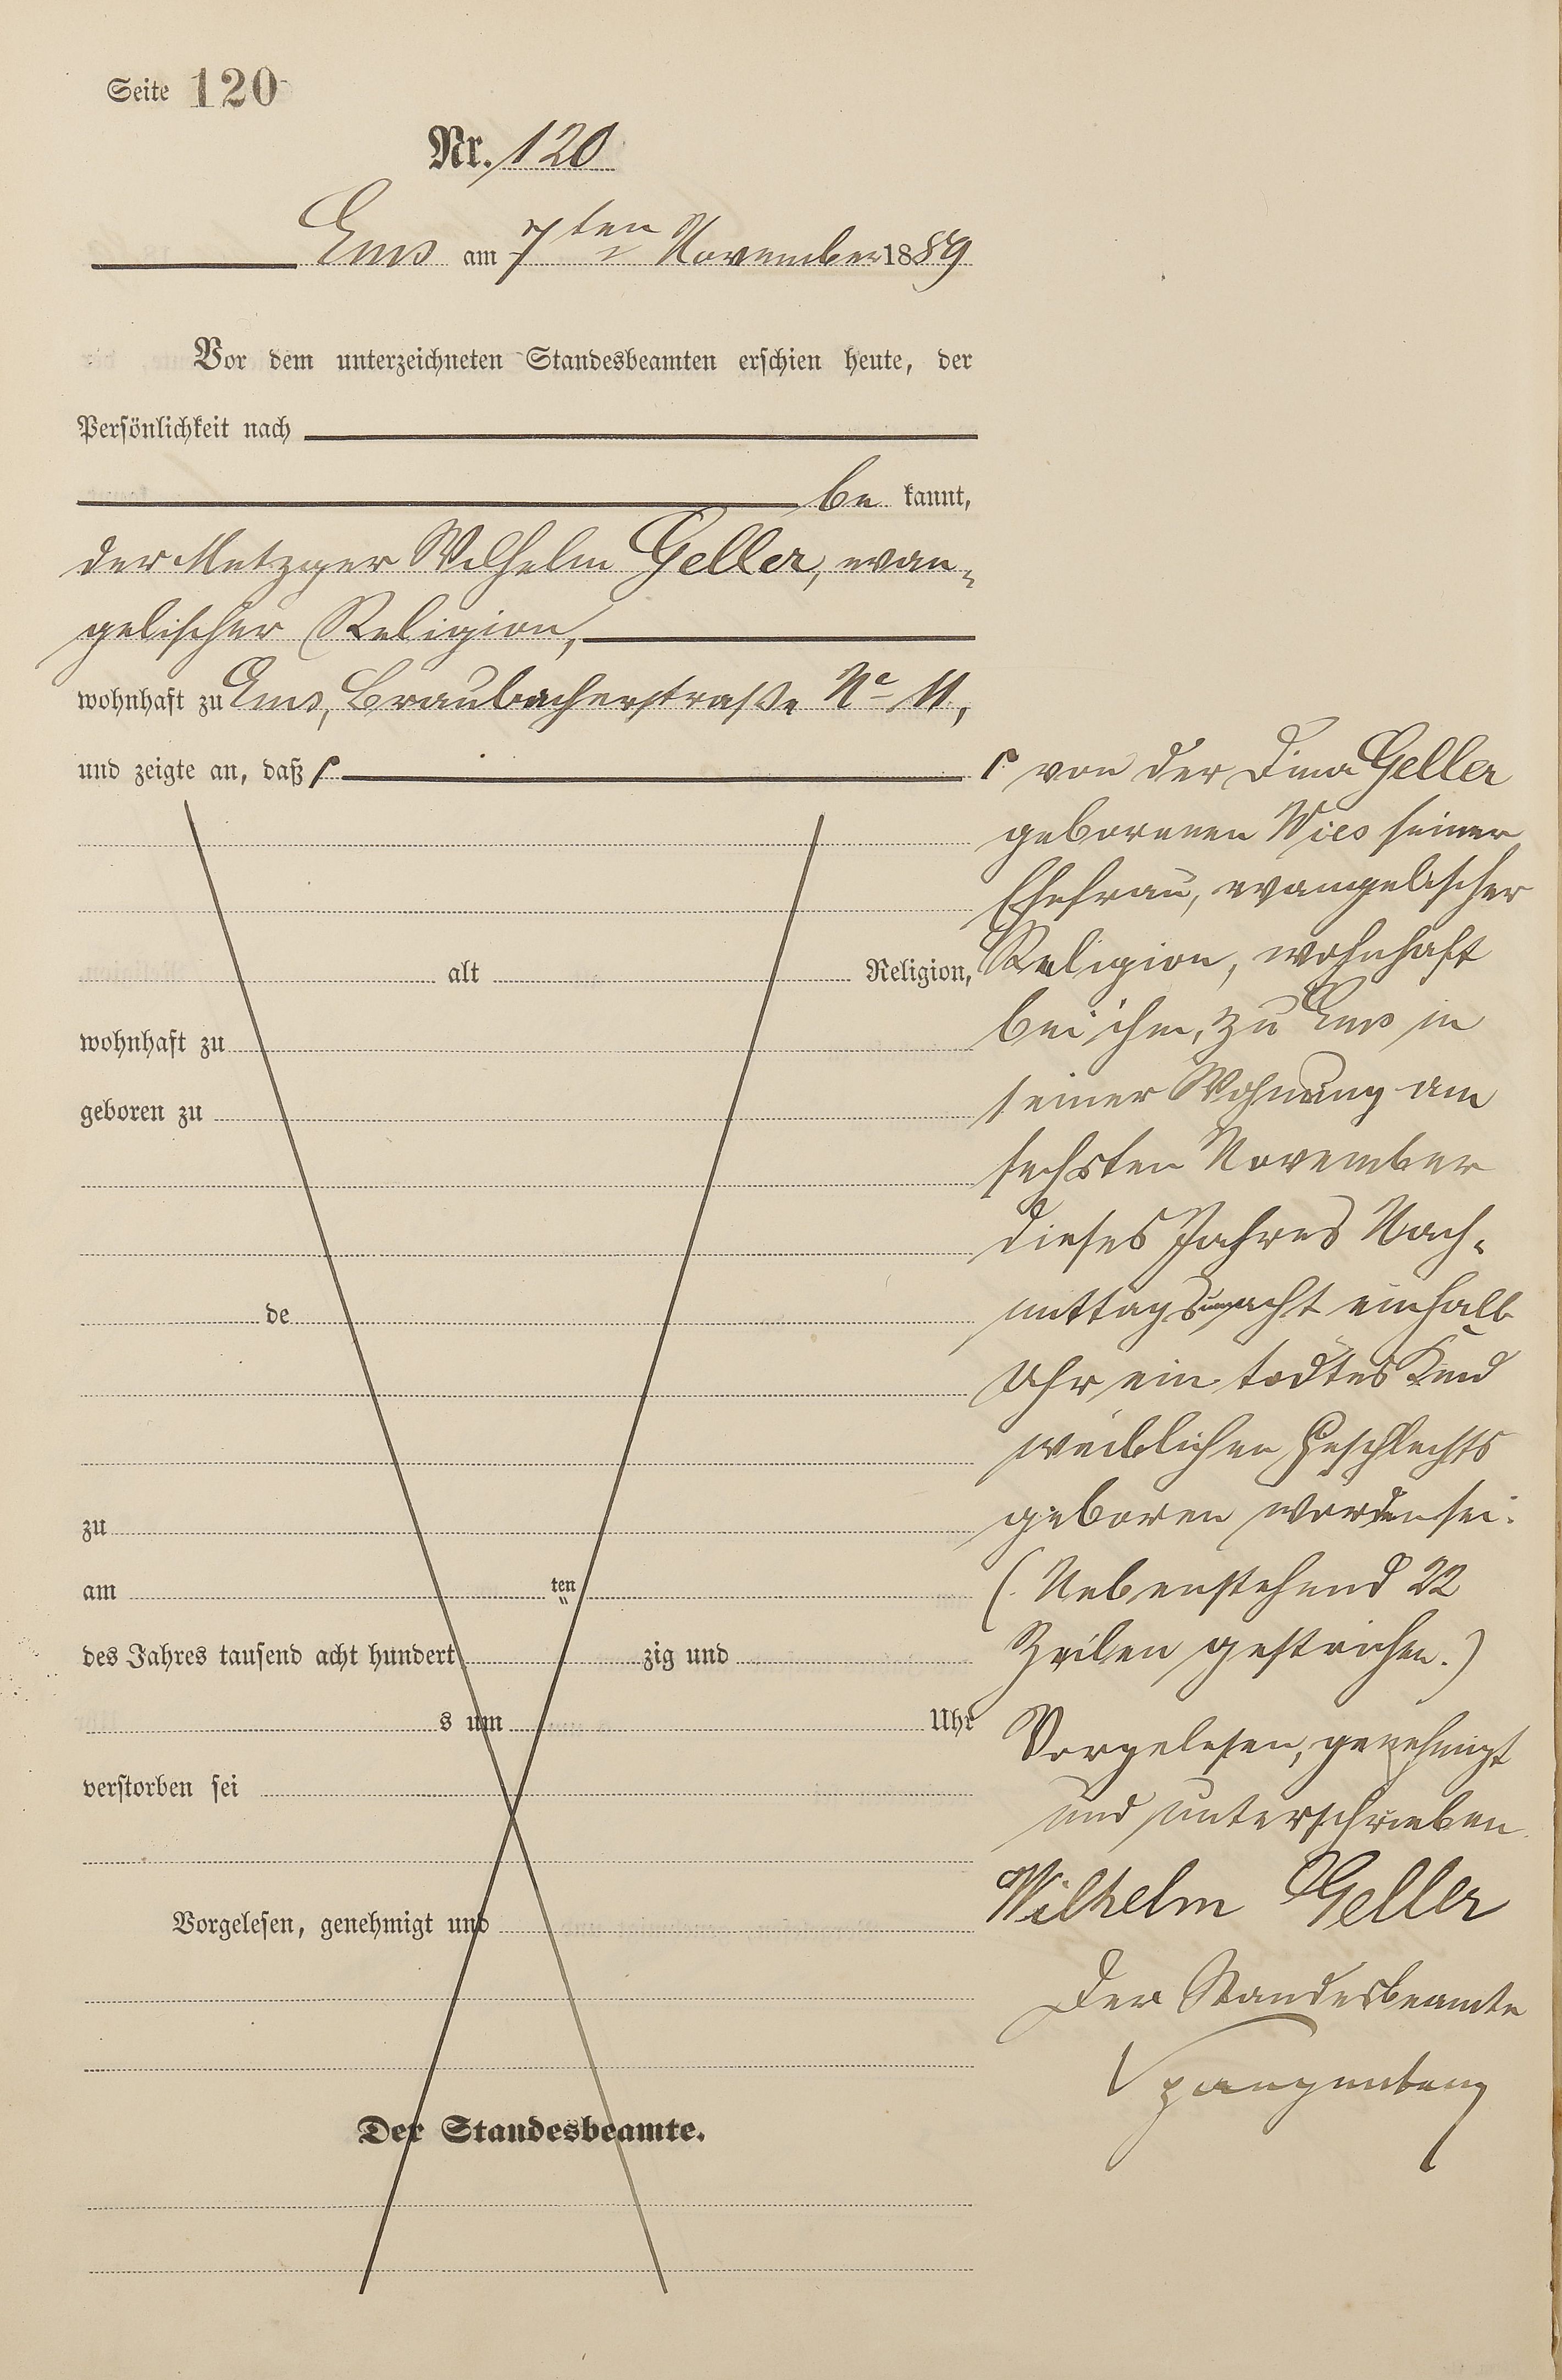 Seite 120
Nr. 120
Ems am 7ten November 1889
Vor dem unterzeichneten Standesbeamten erschien heute, der
Persönlichkeit nach
be kannt,
der Metzger Wilhelm Geller, evan-
gelischer Religion,
wohnhaft zu Ems, Braubacherstraße No 11,
und zeigte an, daß
alt Religion,
wohnhaft zu
geboren zu
de
zu
am ten
des Jahres tausend acht hundert zig und
s um Uhr
verstorben sei
Vorgelesen, genehmigt und
Der Standesbeamte.
von der Dina Geller
geborenen Wies seiner
Ehefrau, evangelischer
Religion, wohnhaft
bei ihm, zu Ems in
seiner Wohnung am
sechsten November
dieses Jahres Nach-
mittags um acht einhalb
Uhr ein todtes Kind
weiblichen Geschlechts
geboren worden sei.
(Nebenstehend 22
Zeilen gestrichen.)
Vorgelesen, genehmigt
und unterschrieben
Wilhelm Geller
Der Standesbeamte
Spangenberg